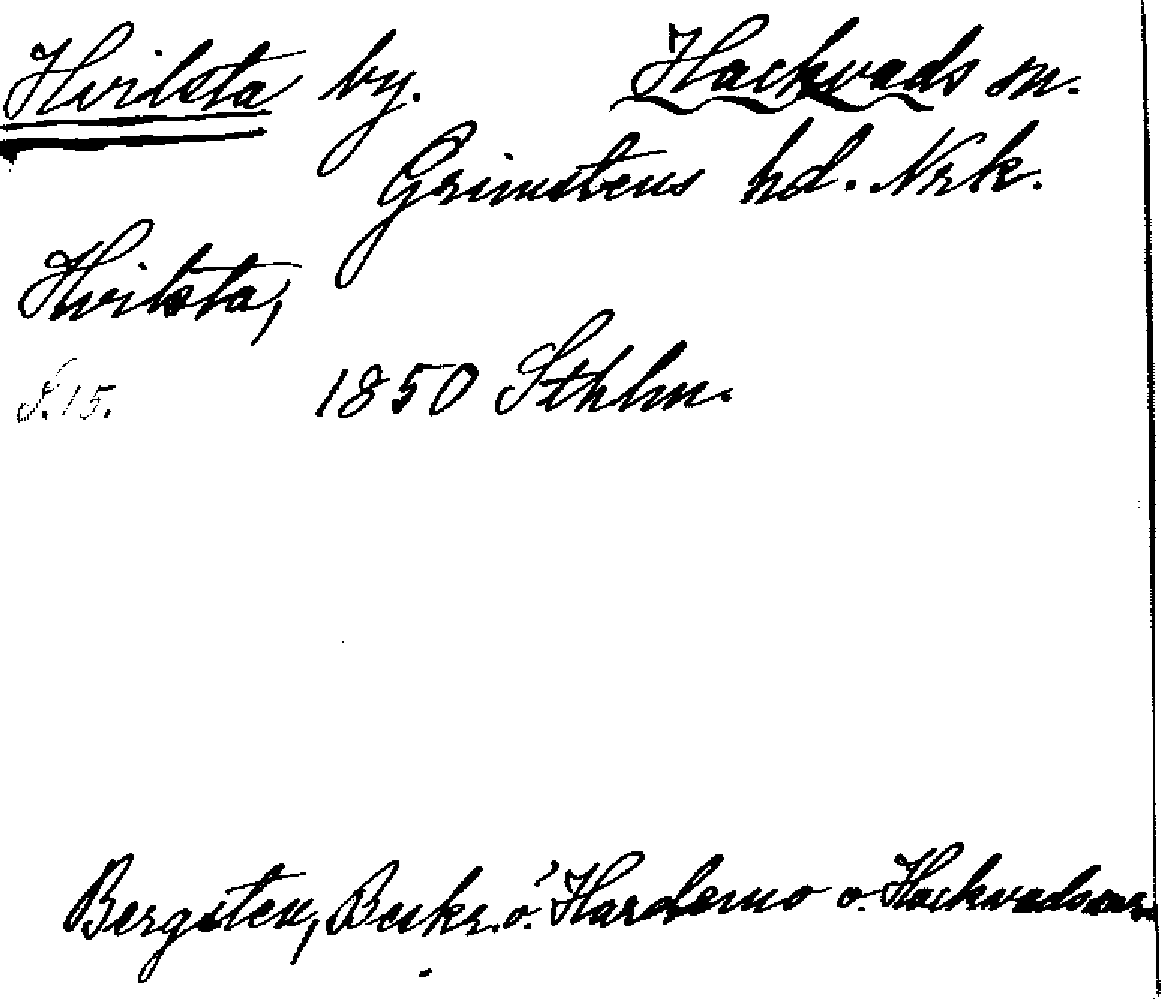 Hvilsta by. Hackvads sn.
Grimstens hd. Nrk.
Hvilsta,
S. 15. 1850 Sthlm.
Bergsten, Beskr. ö. Hardemo o. Hackvads snr.